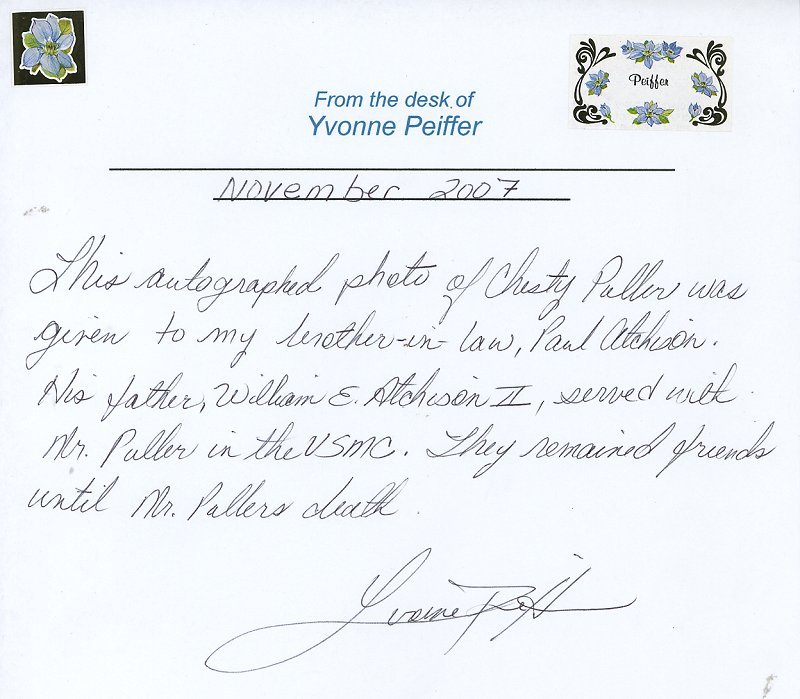 Peiffer
From the desk of
Yvonne Peiffer
November 2007
This autographed photo of Chesty Puller was
given to my brother-in-law, Paul Atchison.
His father, William E. Atchison II, served with
Mr. Puller in the USMC. They remained friends
until Mr. Pullers death.
Yvonne Peiffer